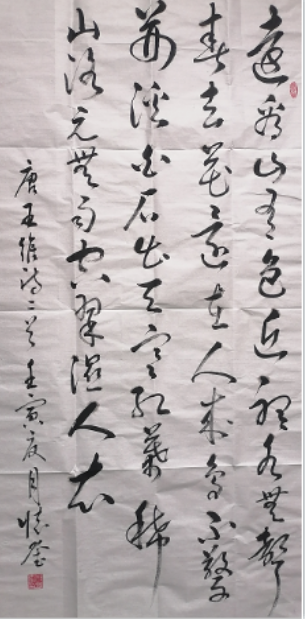 遠看山有色近聽水無聲
春去花還在人來鳥不驚
荊溪白石出天寒紅葉稀
山路元無雨空翠濕人衣
唐王維詩二首壬寅夏月